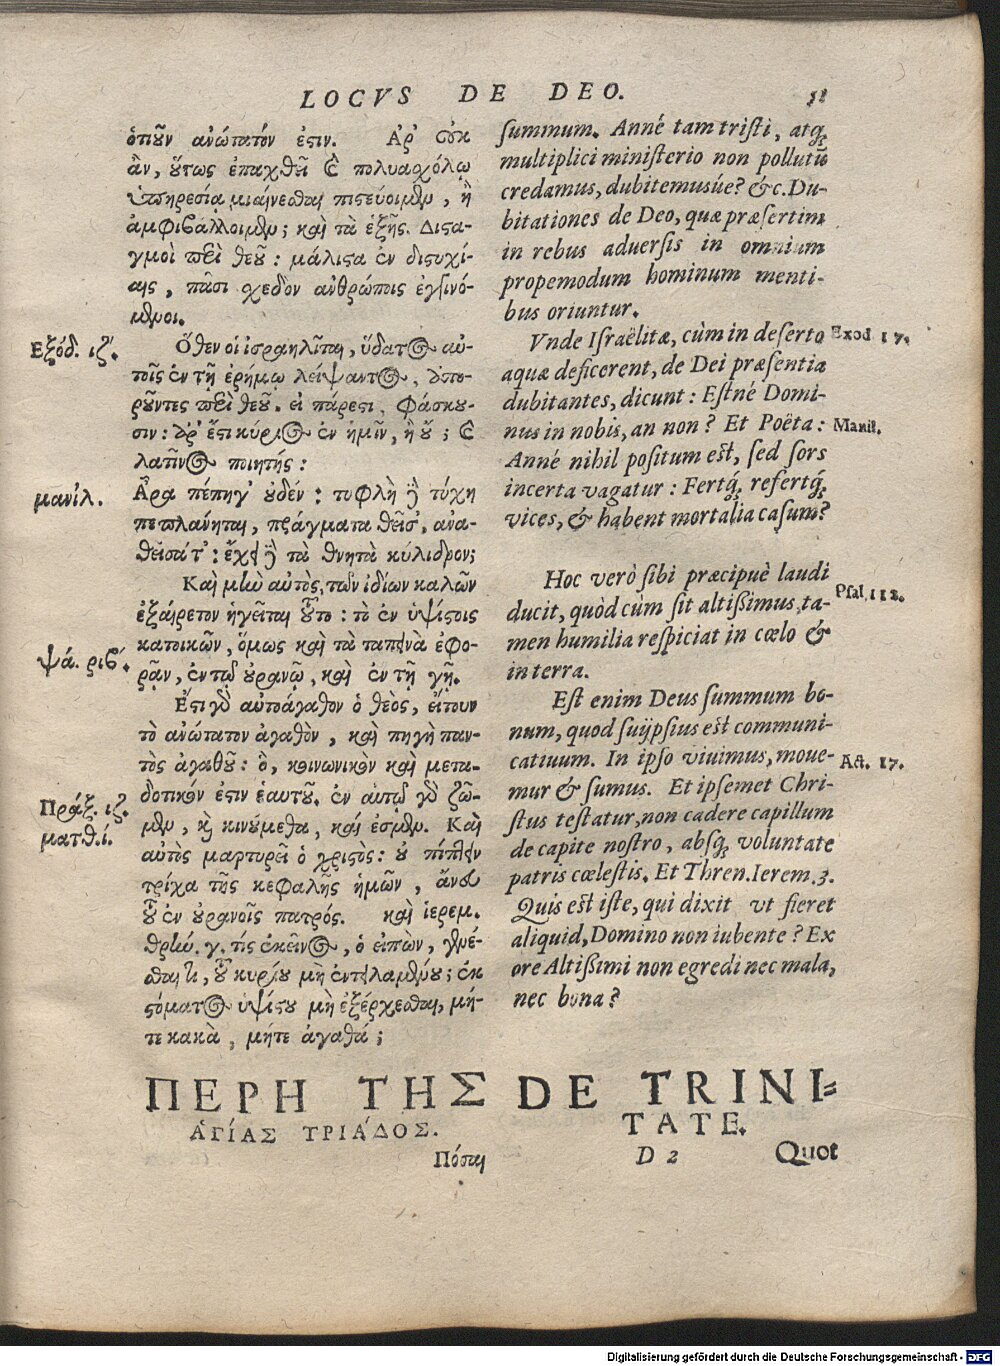 LOCVS DE DEO.
ὁτιοῦν ἀνώτατόν ἐστιν. Ἆρ' οὐκ
ἂν, οὕτως ἐπαχθεῖ καὶ πολυαχόλῳ
ὑπηρεσίᾳ μιαίνεσθαι πιστεύοιμεν, ἢ
ἀμφιβάλλοιμεν; καὶ τὰ ἑξῆς. Δισα-
γμοὶ περὶ θεοῦ: μάλιστα ἐν δυστυχί-
αις, πᾶσι σχεδὸν ἀνθρώποις ἐγγινό-
μενοι.
Ἐξόδ. ιζ'.
Ὅθεν οἱ ἰσραηλῖται, ὕδατος αὐ-
τοῖς ἐν τῇ ἐρήμῳ λείψαντος, ἀπο-
ροῦντες περὶ θεοῦ. εἰ πάρεστι, φάσκου-
σιν: ἆρ' ἔστι κύριος ἐν ἡμῖν, ἢ οὔ; καὶ
λατῖνος ποιητής:
μανίλ.
Ἆρα πέπηγ' οὐδέν: τυφλὴ δὲ τύχη
πεπλάνηται, πράγματα θεῖσ', ἀνα-
θεῖσά τ': ἔχει δὲ τὰ θνητὰ κύλινδρον;
Καὶ μὴν αὐτὸς, τῶν ἰδίων καλῶν
ἐξαίρετον ἡγεῖται τοῦτο: τὸ ἐν ὑψίστοις
κατοικῶν, ὅμως καὶ τὰ ταπεινὰ ἐφο-
ρᾶν, ἐν τῷ οὐρανῷ, καὶ ἐν τῇ γῇ.
ψά. ριβ'.
Ἔστι γὰρ αὐτοάγαθον ὁ θεὸς, εἴτουν
τὸ ἀνώτατον ἀγαθὸν, καὶ πηγὴ παν-
τὸς ἀγαθοῦ: ὃ, κοινωνικὸν καὶ μετα-
δοτικόν ἐστιν ἑαυτοῦ. ἐν αὐτῷ γὰρ ζῶ-
Πράξ. ιζ.
ματθ. ί.
μεν, καὶ κινούμεθα, καί ἐσμεν. Καὶ
αὐτὸς μαρτυρεῖ ὁ χριστὸς: οὐ πίπτειν
τρίχα τῆς κεφαλῆς ἡμῶν, ἄνευ
τοῦ ἐν οὐρανοῖς πατρός. καὶ ἱερεμ.
θρην. γ. τίς ἐκεῖνος, ὁ εἰπὼν, γενέ-
σθαι τι, τοῦ κυρίου μὴ ἐντειλαμένου; ἐκ
στόματος ὑψίστου μὴ ἐξέρχεσθαι, μή-
τε κακὰ, μήτε ἀγαθά;
ΠΕΡΗ ΤΗΣ
ἉΓΊΑΣ ΤΡΙΆΔΟΣ.
Πόσαι
summum. Anné tam tristi, atq;
multiplici ministerio non pollutū
credamus, dubitemusúe? &c. Du-
bitationes de Deo, quæ præsertim
in rebus aduersis in omnium
propemodum hominum menti-
bus oriuntur.
Vnde Israëlitæ, cùm in deserto
Exod 17.
aquæ deficerent, de Dei præsentia
dubitantes, dicunt: Estné Domi-
nus in nobis, an non? Et Poëta:
Manil.
Anné nihil positum est, sed sors
incerta vagatur: Fertq́;, refertq́;
vices, & habent mortalia casum?
Hoc verò sibi præcipuè laudi
Psal. 112.
ducit, quòd cùm sit altißimus, ta-
men humilia respiciat in cœlo &
in terra.
Est enim Deus summum bo-
num, quod suijpsius est communi-
catiuum. In ipso viuimus, moue-
Act. 17.
mur & sumus. Et ipsemet Chri-
stus testatur, non cadere capillum
de capite nostro, absq; voluntate
patris cœlestis. Et Thren. Ierem. 3.
Quis est iste, qui dixit vt fieret
aliquid, Domino non iubente? Ex
ore Altißimi non egredi nec mala,
nec bona?
DE TRINI=
TATE.
D 2 Quot
Digitalisierung gefördert durch die Deutsche Forschungsgemeinschaft - DFG